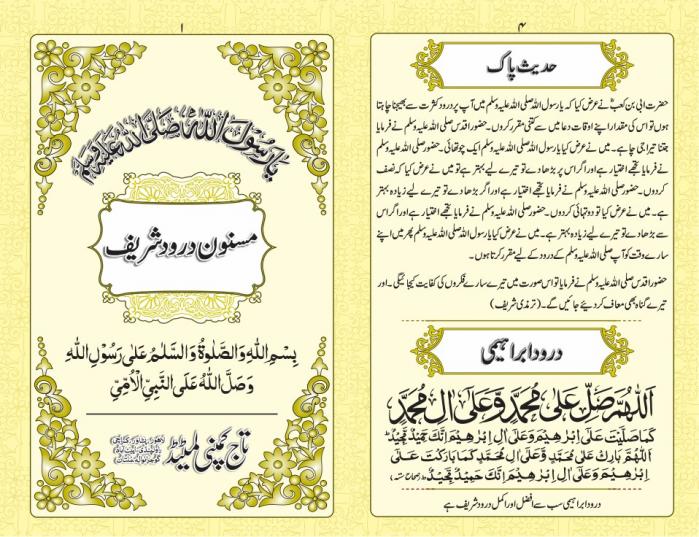 ۱
یَا رَسُوْلَ اللّٰہ صَلَّی اللّٰہُ عَلَیْہِ وَسَلَّم
مسنون درود شریف
بِسْمِ اللّٰہِ وَالصَّلٰوۃُ وَالسَّلٰمُ عَلٰی رَسُوْلِ اللّٰہِ
وَصَلَّ اللّٰہُ عَلَی النَّبِیِّ الْاُمِّیِّ
تاج کمپنی لمیٹڈ
۴
حدیث پاک
حضرت ابی بن کعبؓ نے عرض کیا کہ یارسول اللہ صلی اللہ علیہ وسلم میں آپ پر درود کثرت سے بھیجنا چاہتا
ہوں تو اس کی مقدار اپنے اوقات دعا میں سے کتنی مقرر کروں۔ حضور اقدس صلی اللہ علیہ وسلم نے فرمایا
جتنا تیرا جی چاہے۔ میں نے عرض کیا یارسول اللہ صلی اللہ علیہ وسلم ایک چوتھائی۔ حضور صلی اللہ علیہ وسلم
نے فرمایا تجھے اختیار ہے اور اگر اس پر بڑھا دے تو تیرے لیے بہتر ہے تو میں نے عرض کیا کہ نصف
کردوں۔ حضور صلی اللہ علیہ وسلم نے فرمایا تجھے اختیار ہے اور اگر بڑھا دے تو تیرے لیے زیادہ بہتر
ہے۔ میں نے عرض کیا تو دو تہائی کردوں۔ حضور صلی اللہ علیہ وسلم نے فرمایا تجھے اختیار ہے اور اگر اس
سے بڑھا دے تو تیرے لیے زیادہ بہتر ہے۔ میں نے عرض کیا یارسول اللہ صلی اللہ علیہ وسلم پھر میں اپنے
سارے وقت کو آپ صلی اللہ علیہ وسلم کے درود کے لیے مقرر کرتا ہوں۔
حضور اقدس صلی اللہ علیہ وسلم نے فرمایا تو اس صورت میں تیرے سارے فکروں کی کفایت کیجائیگی۔ اور
تیرے گناہ بھی معاف کردیئے جائیں گے۔ (ترمذی شریف)
درود ابراہیمی
اَللّٰھُمَّ صَلِّ عَلٰی مُحَمَّدٍ وَّعَلٰٓی اٰلِ مُحَمَّدٍ
کَمَا صَلَّیْتَ عَلٰٓی اِبْرٰھِیْمَ وَعَلٰٓی اٰلِ اِبْرٰھِیْمَ اِنَّکَ حَمِیْدٌ مَّجِیْدٌ
اَللّٰھُمَّ بَارِکْ عَلٰی مُحَمَّدٍ وَّعَلٰٓی اٰلِ مُحَمَّدٍ کَمَا بَارَکْتَ عَلٰٓی
اِبْرٰھِیْمَ وَعَلٰٓی اٰلِ اِبْرٰھِیْمَ اِنَّکَ حَمِیْدٌ مَّجِیْدٌ (صحاح ستہ)
درود ابراہیمی سب سے افضل اور اکمل درود شریف ہے